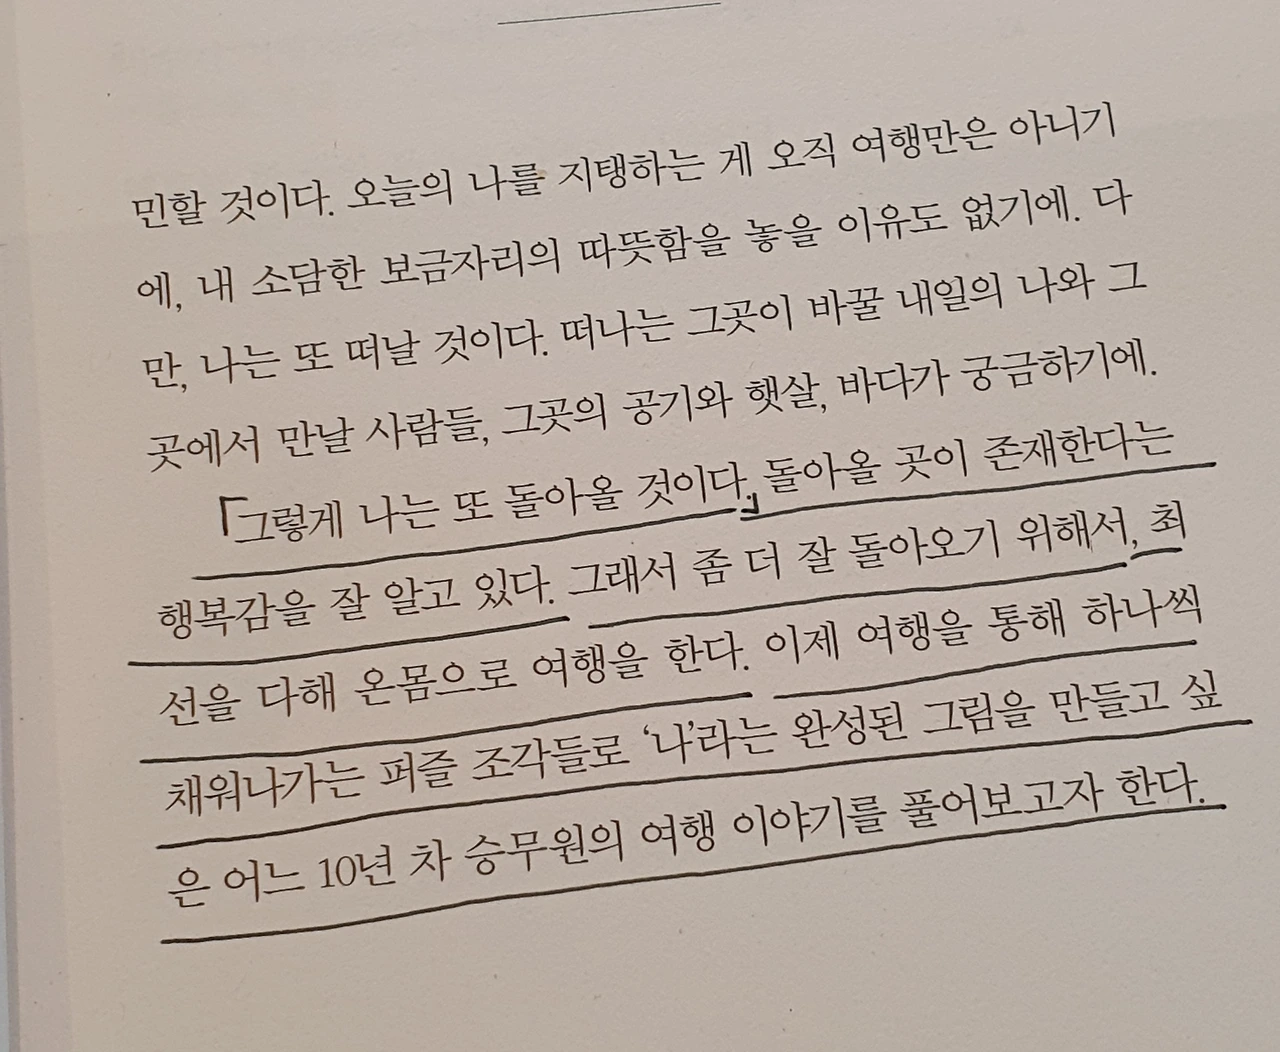 민할 것이다. 오늘의 나를 지탱하는 게 오직 여행만은 아니기
에, 내 소담한 보금자리의 따뜻함을 놓을 이유도 없기에. 다
만, 나는 또 떠날 것이다. 떠나는 그곳이 바꿀 내일의 나와 그
곳에서 만날 사람들, 그곳의 공기와 햇살, 바다가 궁금하기에.
「그렇게 나는 또 돌아올 것이다.」 돌아올 곳이 존재한다는
행복감을 잘 알고 있다. 그래서 좀 더 잘 돌아오기 위해서, 최
선을 다해 온몸으로 여행을 한다. 이제 여행을 통해 하나씩
채워나가는 퍼즐 조각들로 ‘나’라는 완성된 그림을 만들고 싶
은 어느 10년 차 승무원의 여행 이야기를 풀어보고자 한다.